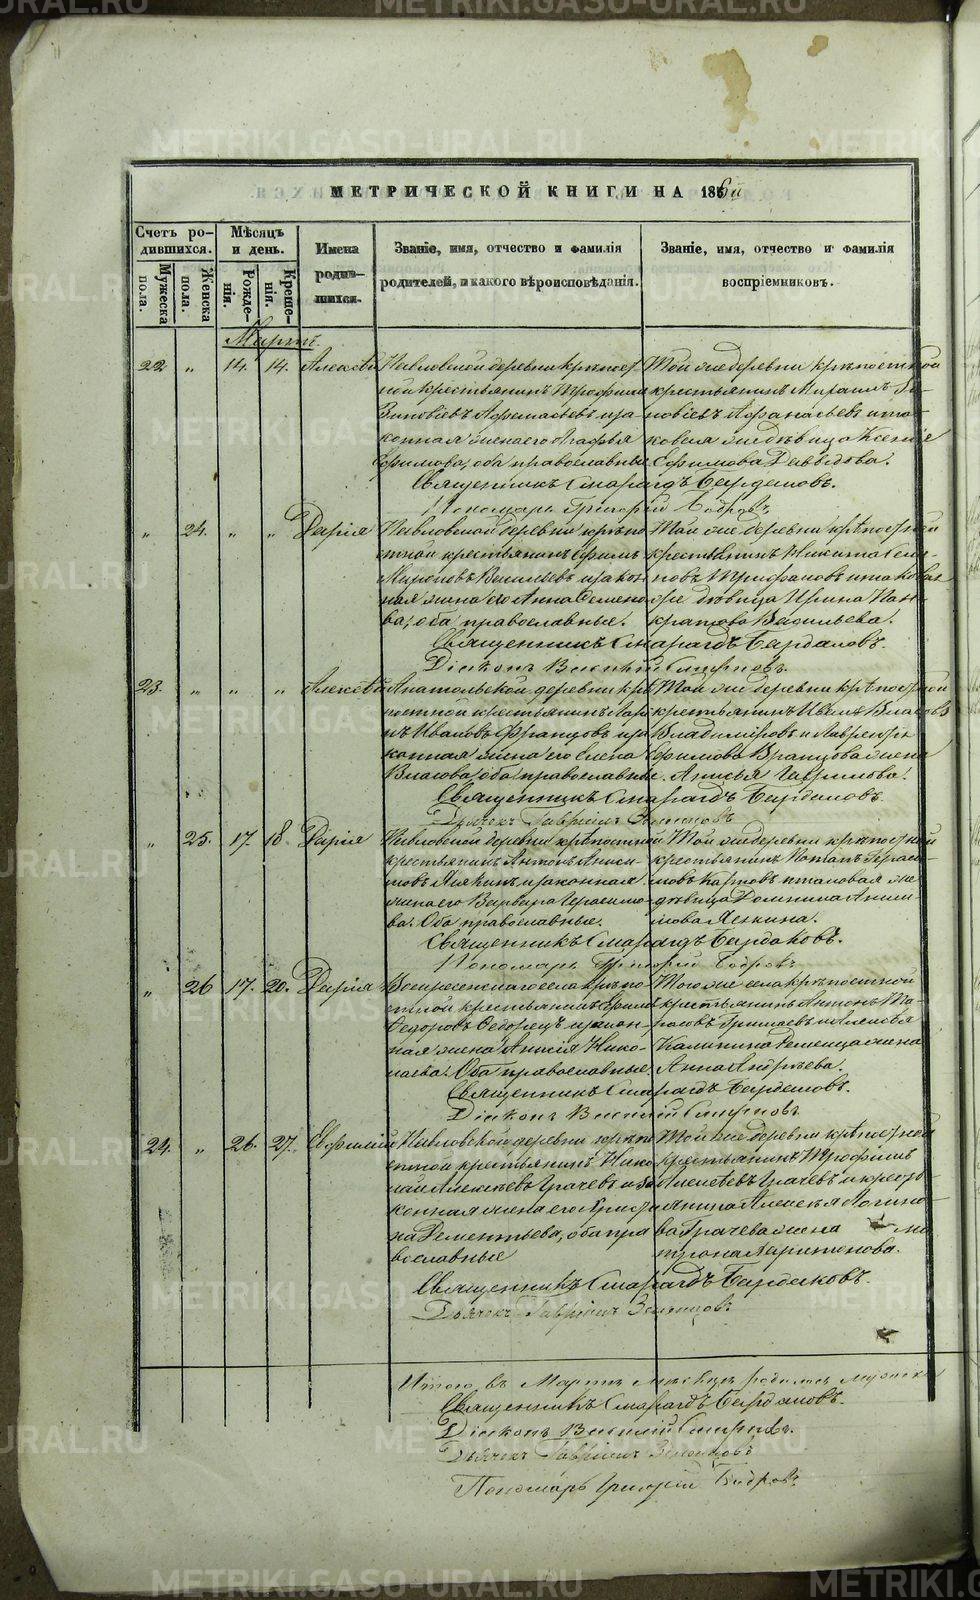 МЕТРИЧЕСКОЙ КНИГИ НА 1856й
Счетъ ро-
дившихся.
Мѣсяцъ
и день.
Имена
родив-
шихся.
Званіе, имя, отчество и фамилія
родителей, и какого вѣроисповѣданія.
Званіе, имя, отчество и фамилія
воспріемниковъ.
Мужеска
пола.
Женска
пола.
Рожде-
нія.
Креще-
нія.
Мартъ.
22 " 14. 14. Алексѣй
Павловской деревни крѣпост
ной крестьянинъ Трофимъ
Зиновіевъ Афанасьевъ и за-
конная жена его Агафья
Ефимова, оба православные
Той же деревни крѣпостной
крестьянинъ
новіевъ Афанасьевъ и та-
ковая же дѣвица Ксенія
Ефимова Давыдова.
Священникъ Смарагдъ Бардаковъ.
Пономарь Григорій Бобровъ
" 24. " " Дарія
Павловской деревни крѣпо
стной крестьянинъ Ефимъ
Мироновъ Васильевъ и закон
ная жена его Анна Семено
ва, оба православные.
Той же деревни крѣпостной
крестьянинъ Никита Семе-
новъ Трифановъ и таковая
же дѣвица Ирина Пан-
кратова Васильева.
Священникъ Смарагдъ Бардаковъ.
Діаконъ Василій Смирновъ.
23. " " " Алексѣй
Анатольской деревни крѣ
постной крестьянинъ
нъ Ивановъ и за
конная жена его Елена
Власова, оба православные.
Той же деревни крѣпостной
крестьянинъ Иванъ Власовъ
Владиміровъ и Лаврентья
Ефимова жена
Анисья Гаврилова.
Священникъ Смарагдъ Бардаковъ.
Дьячекъ Гавріилъ
" 25. 17. 18. Дарія
Павловской деревни крѣпостной
крестьянинъ Антонъ Аниси-
мовъ и законная
жена его Варвара Герасимо-
ва. Оба православные.
Той же деревни крѣпостной
крестьянинъ Потапъ Гераси-
мовъ Карповъ и таковая же
дѣвица Домнина Аниси-
мова
Священникъ Смарагдъ Бардаковъ.
Пономарь Григорій Бобровъ
" 26 17. 20. Дарія
Воскресенскаго села крѣпо
стной крестьянинъ Ефимъ
Федоровъ и закон-
ная жена Анисія Нико-
лаева. Оба православные.
Того же села крѣпостной
крестьянинъ Антонъ Та-
расовъ и Алексѣя
Калинина жена
Анна Андрѣева.
Священникъ Смарагдъ Бардаковъ.
Діаконъ Василій Смирновъ
24. " 26. 27. Евфимій
Павловской деревни крѣпо
стной крестьянинъ Нико
лай Алексѣевъ Грачевъ и за
конная жена его Ирина
Дементьева, оба пра
вославные
Той же деревни крѣпостной
крестьянинъ Трофимъ
Алексѣевъ Грачевъ и кресть
янина Алексѣя Логино-
ва Грачева жена Ма
трона Харитонова.
Священникъ Смарагдъ Бардаковъ.
Дьячекъ Гавріилъ
Итого въ Мартѣ мѣсяцѣ родилось мужеска
Священникъ Смарагдъ Бардаковъ.
Діаконъ Василій Смирновъ.
Дьячекъ Гавріилъ
Пономарь Григорій Бобровъ
METRIKI.GASO-URAL.RU